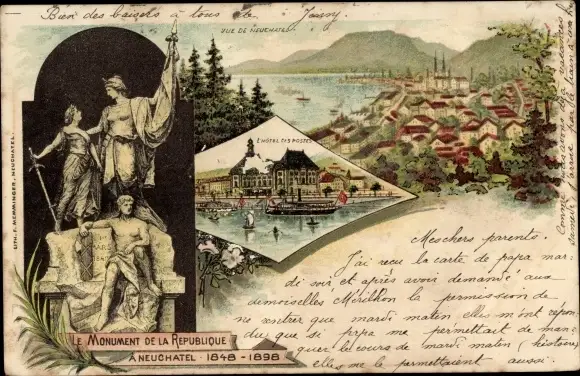 Bien des baisers à tous de Jenny.
VUE DE NEUCHATEL
L'HÔTEL DES POSTES
LITH. F. MEMMINGER, NEUCHATEL.
LE MONUMENT DE LA REPUBLIQUE
À NEUCHATEL · 1848 - 1898
Mes chers parents.
J'ai reçu la carte de papa mar-
di soir et après avoir demandé aux
demoiselles la permission de
ne rentrer que mardi matin elles m'ont répon-
du que si papa me permettait de man-
quer le cours de mardi matin (histoire)
elles me le permettaient aussi.